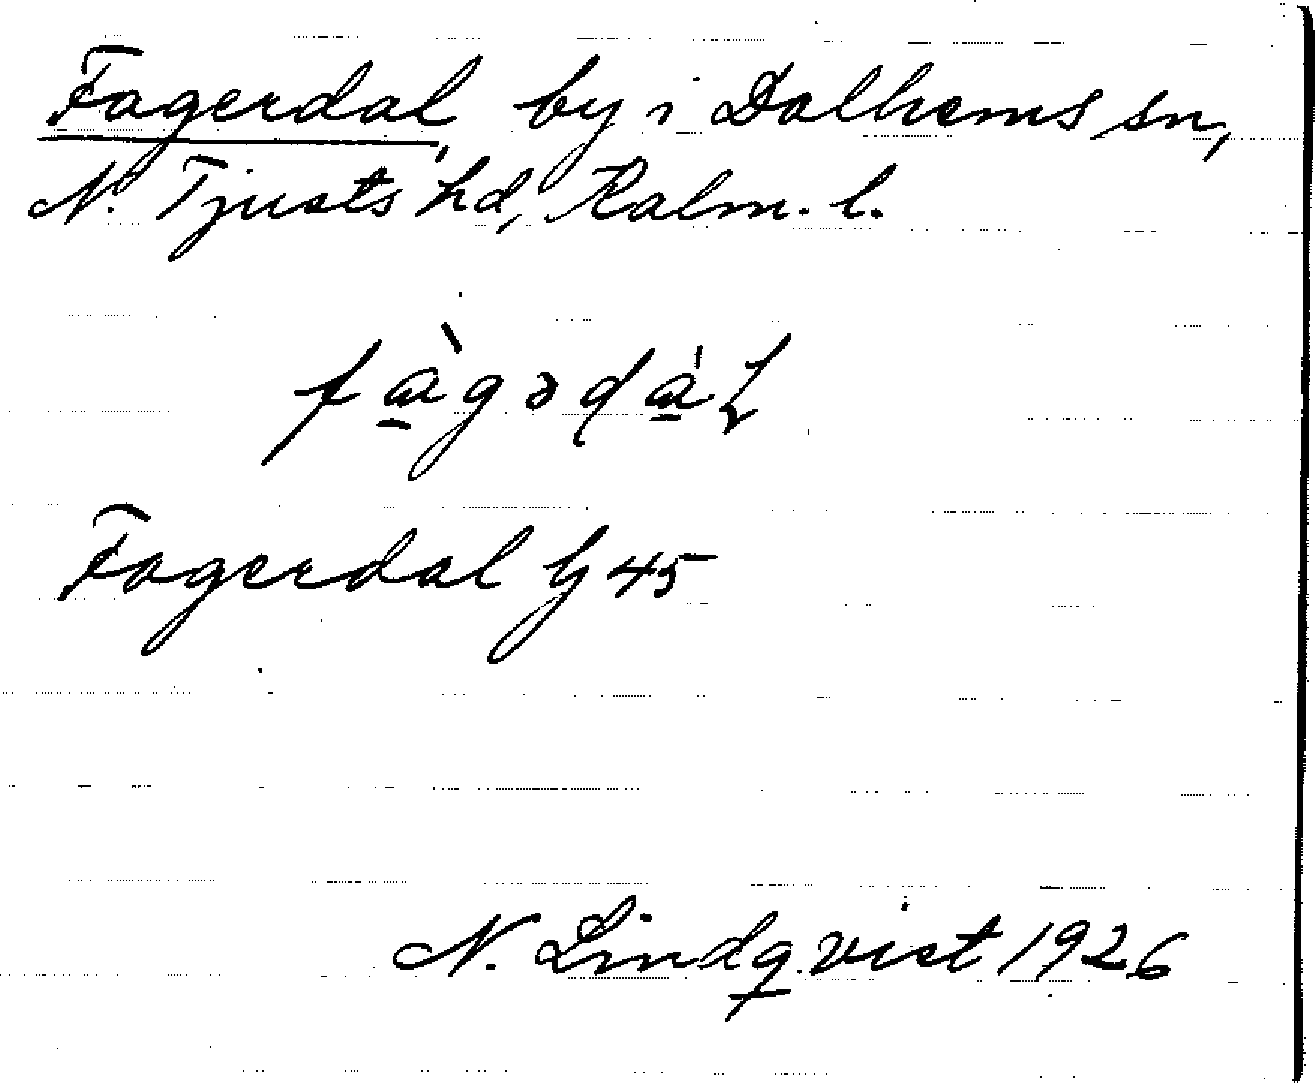 Fagerdal, by i Dalhems sn,
N. Tjusts hd, Kalm. l.
Fagerdal G 45
N. Lindqvist 1926